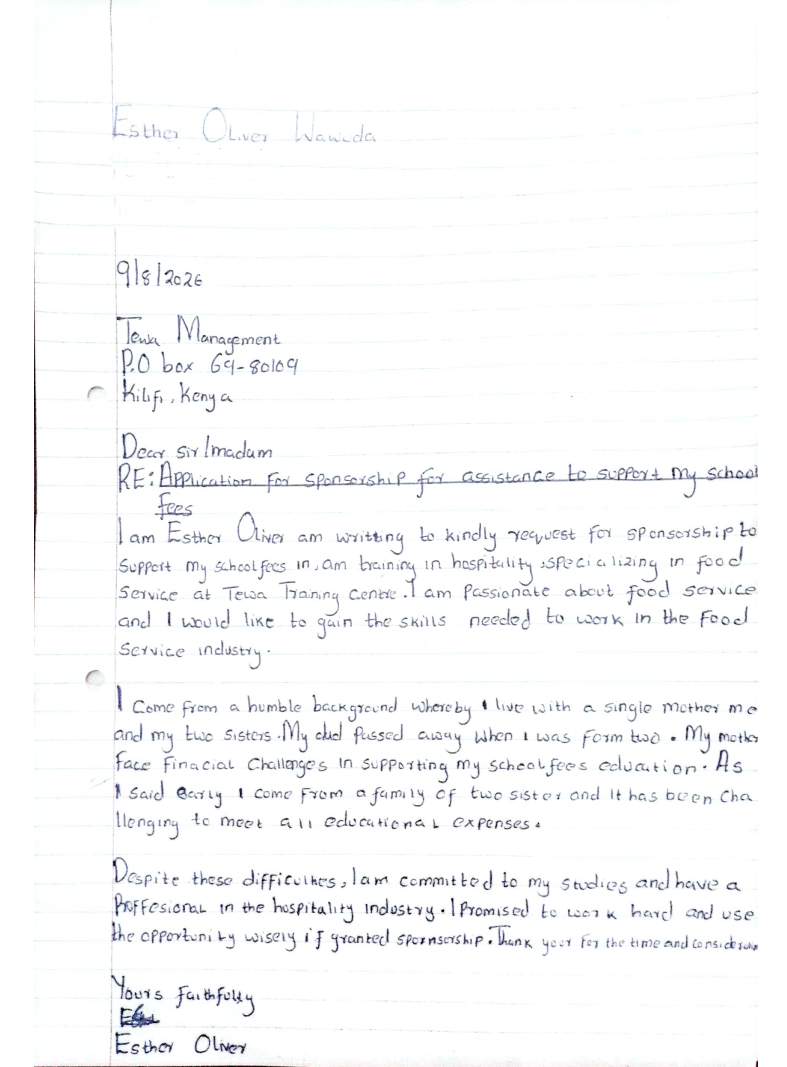 Esther Oliver Wawuda
9/8/2026
Tewa Management
P.O box 69-80109
Kilifi, Kenya
Dear Sir/madam
RE: Application for sponsorship for assistance to support my school
fees
I am Esther Oliver am writting to kindly request for sponsorship to
Support my school fees in, am training in hospitality, specializing in food
Service at Tewa Training Centre. I am Passionate about food service
and I would like to gain the skills needed to work in the Food
Service industry.
I Come from a humble background whereby I live with a single mother me
and my two sisters. My dad Passed away when I was form two. My mother
face Finacial Challenges in supporting my school fees education. As
I Said Early I come from a family of two sister and it has been Cha
llenging to meet all educational expenses.
Despite these difficulties, I am committed to my studies and have a
Proffesional in the hospitality industry. I Promised to work hard and use
the opportunity wisely if granted spornsorship. Thank your for the time and consideration
Yours Faithfully
Esther Oliver